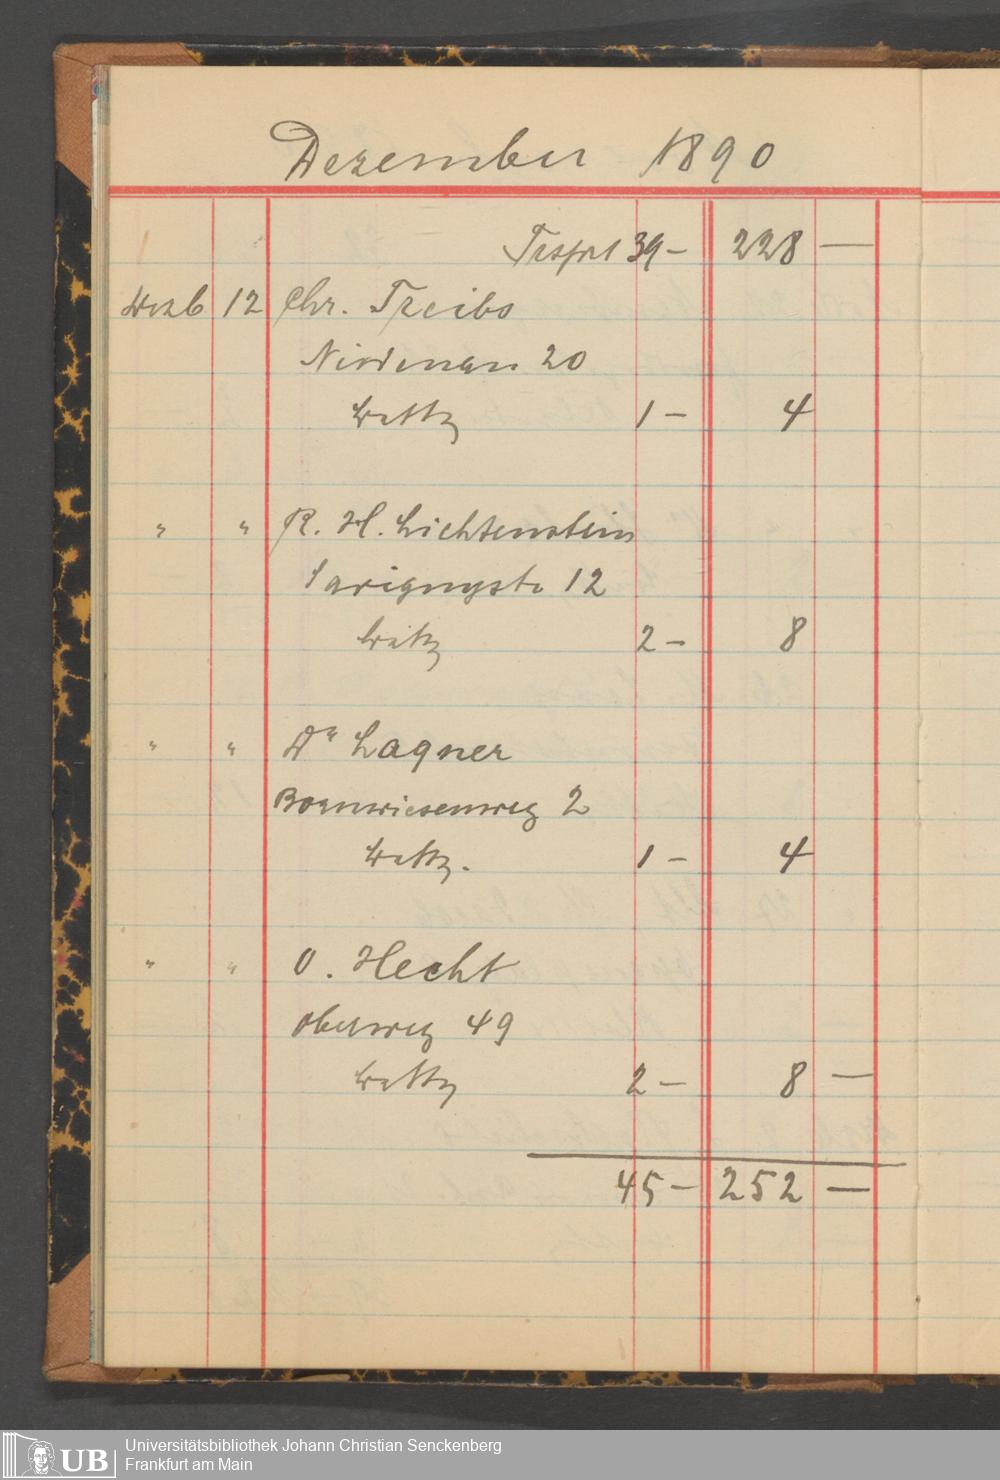 Dezember 1890
Trsprt 39 - 228 —
Dezb 12 Chr. Treibs
Niedenau 20
1 - 4
" " R. H. Lichtenstein
Savignystr 12
2 - 8
" " Dr Lagner
Bornwiesenweg 2
1 - 4
" " O. Hecht
Oberweg 49
2 - 8 —
45 - 252 —
UB Universitätsbibliothek Johann Christian Senckenberg
Frankfurt am Main